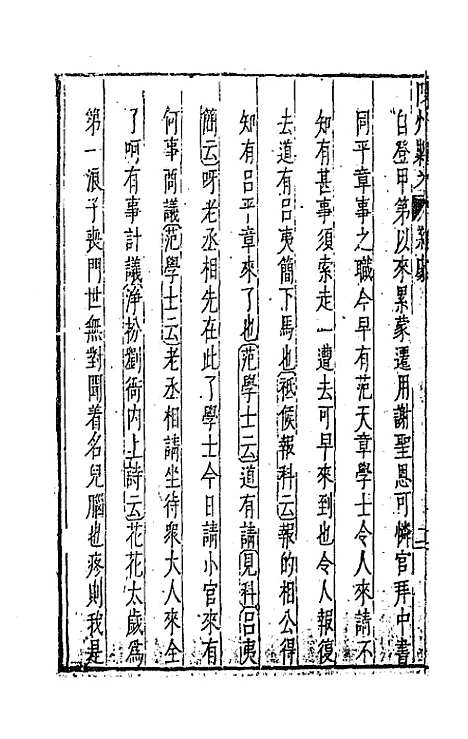 自登甲第以來累蒙遷用謝聖恩可憐官拜中書
同平章事之職今早有范天章學士令人來請不
知有甚事須索走一遭去可早來到也令人報復
去道有呂夷簡下馬也祗候報科云報的相公得
知有呂平章來了也范學士云道有請見科呂夷
簡云呀老丞相先在此了學士今日請小官來有
何事商議范學士云老丞相請坐待衆大人來全
了呵有事計議淨扮劉衙内上詩云花花太歲爲
第一浪子喪門世無對聞着名兒腦也疼則我是